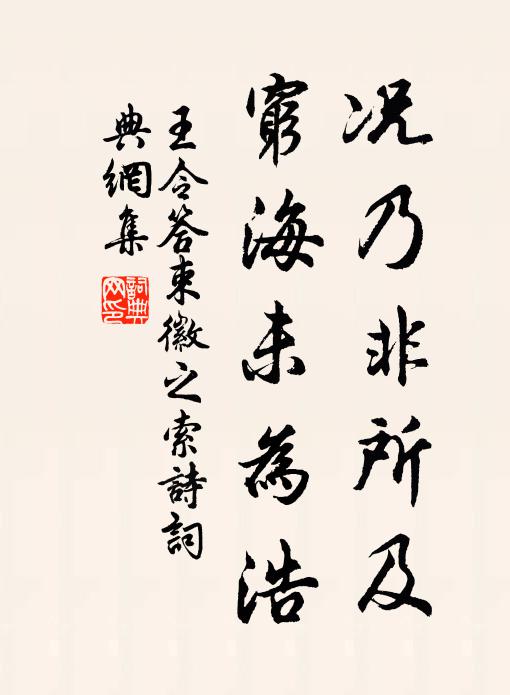 况乃非所及
窮海未為浩
王令答束徽之索詩詞
典網集
詞典網印